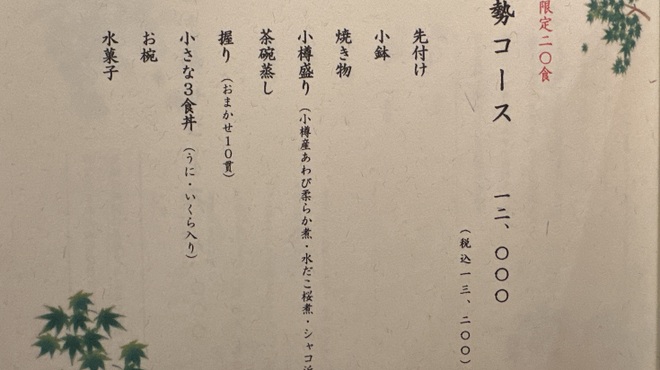 限定二〇食
勢コース 一二、〇〇〇
（税込一三、二〇〇）
先付け
小鉢
焼き物
小樽盛り（小樽産あわび柔らか煮・水だこ桜煮・シャコ
茶碗蒸し
握り（おまかせ１０貫）
小さな３食丼（うに・いくら入り）
お椀
水菓子